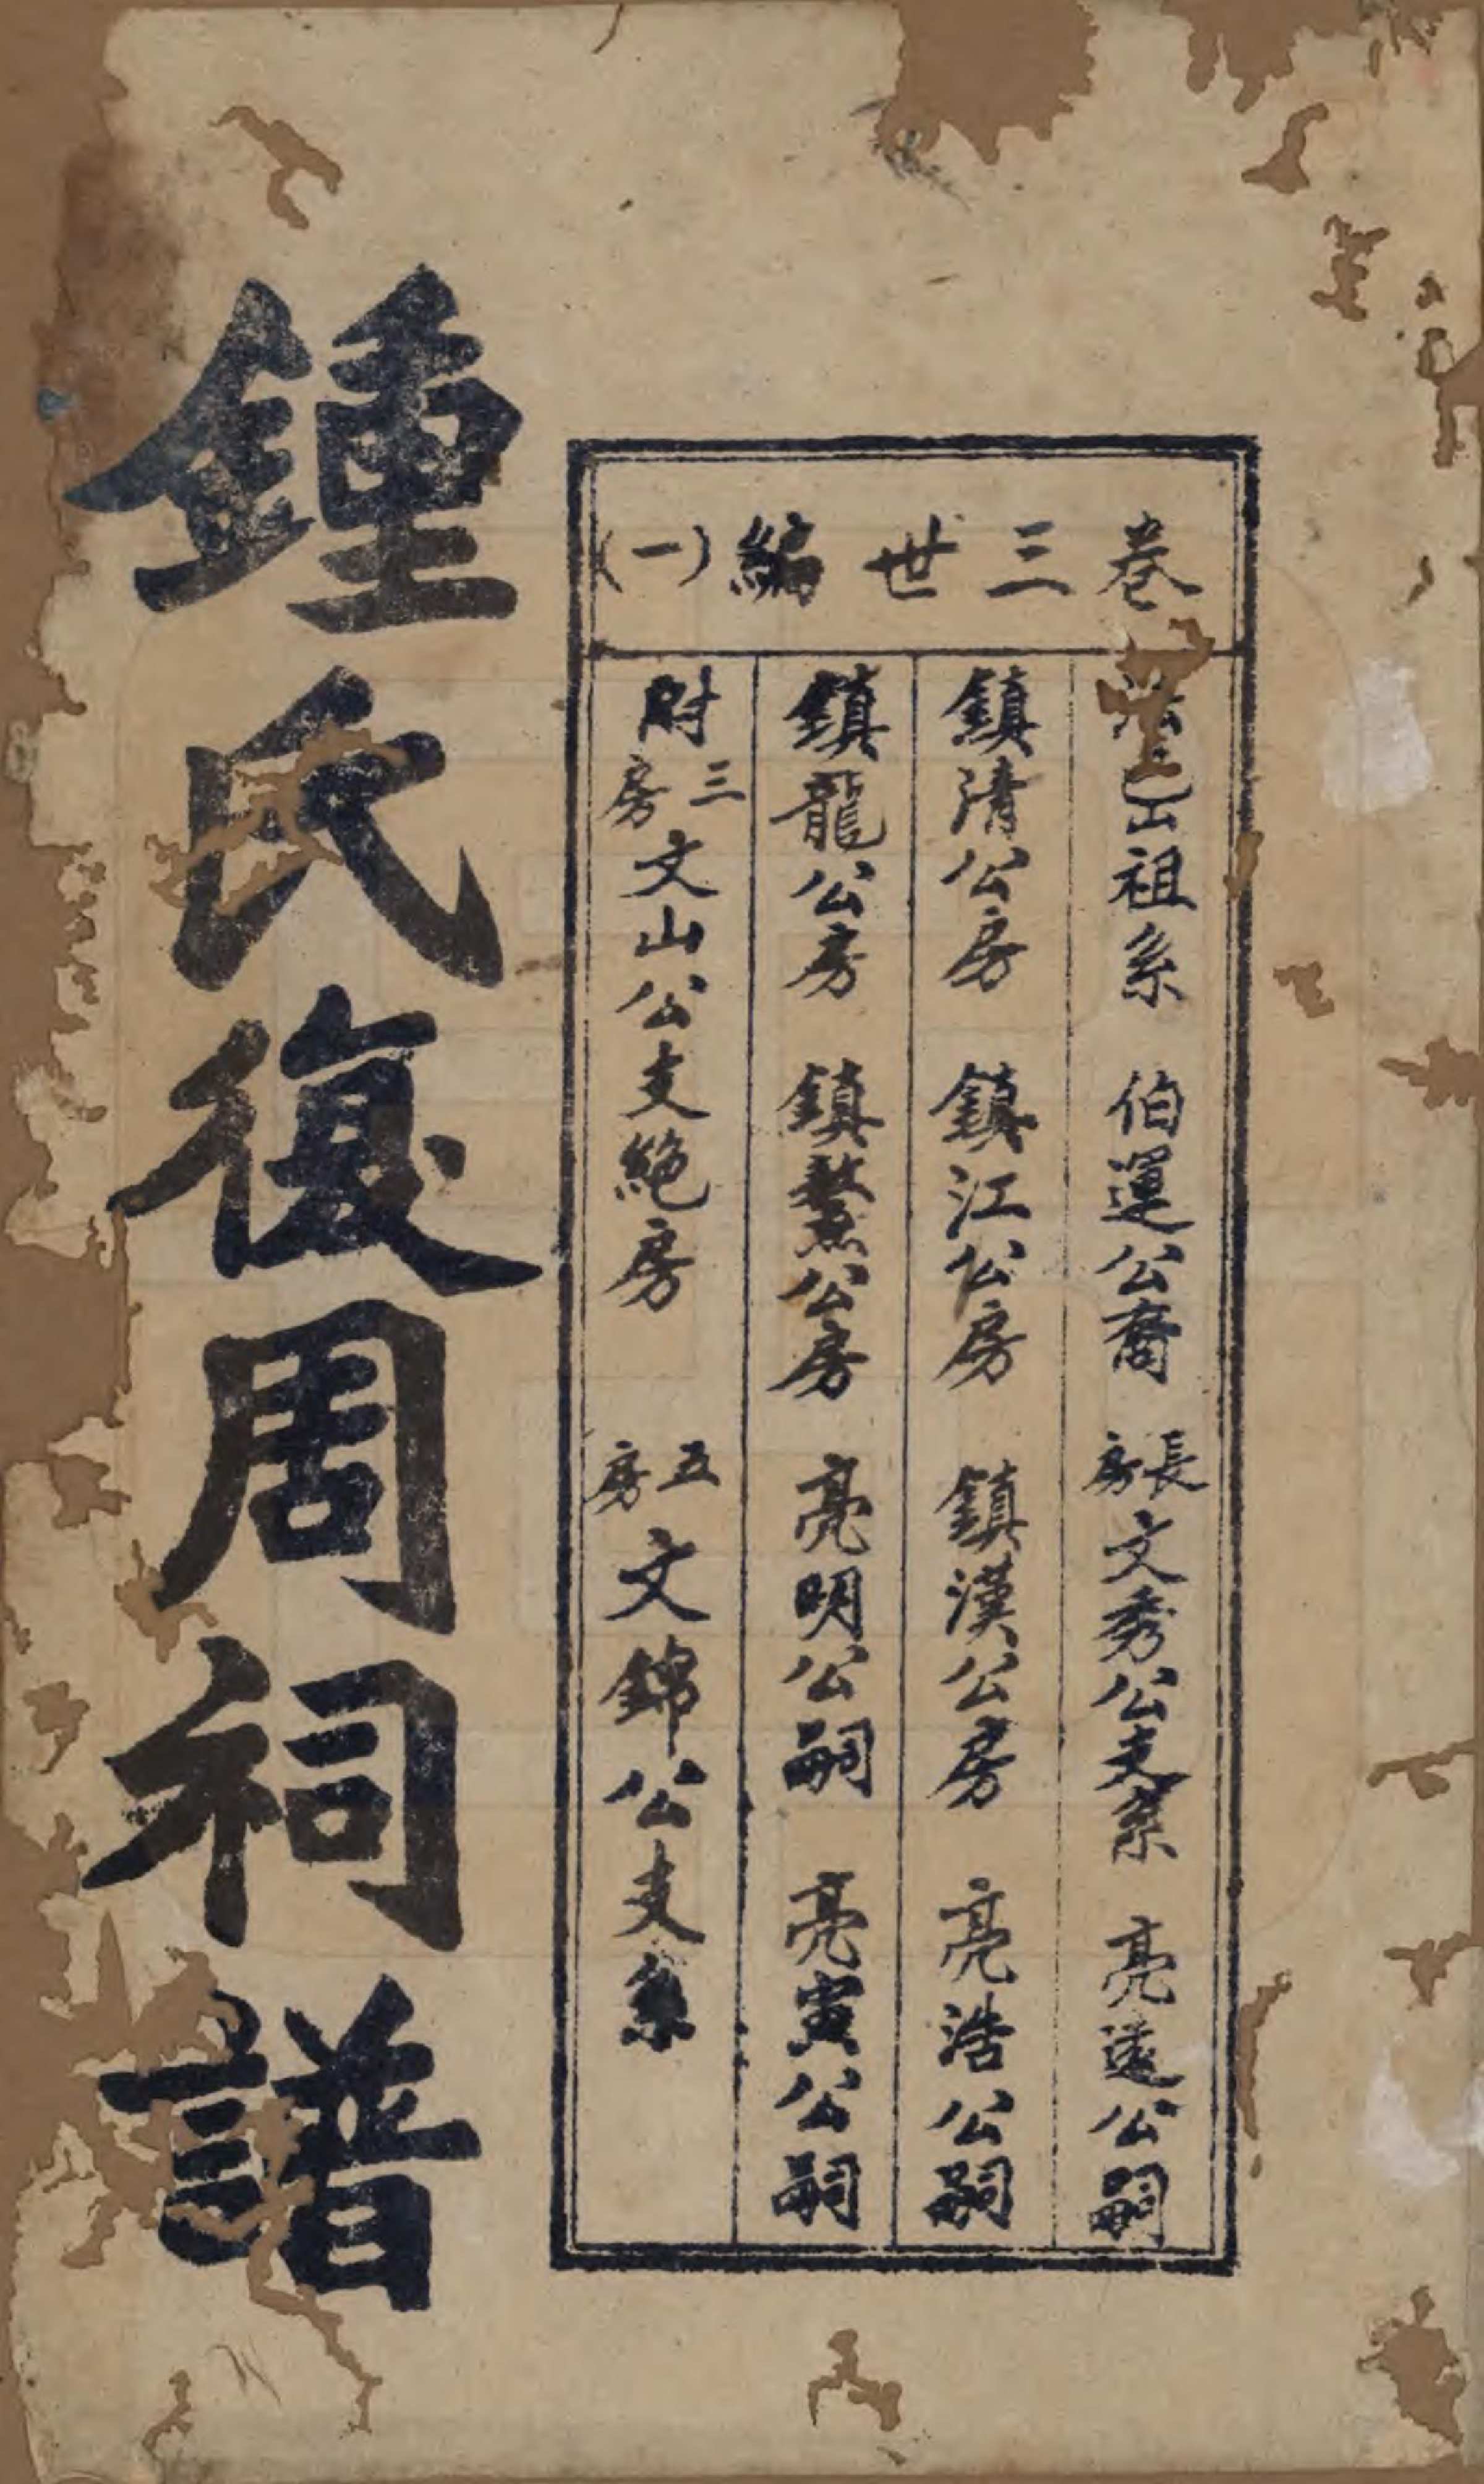 卷三世編(一)
出祖系 伯運公裔 長房文秀公支系 亮遠公嗣
鎮清公房 鎮江公房 鎮漢公房 亮浩公嗣
鎮龍公房 鎮鰲公房 亮明公嗣 亮寅公嗣
附三房文山公支絶房 五房文錦公支系
鍾氏復周祠譜